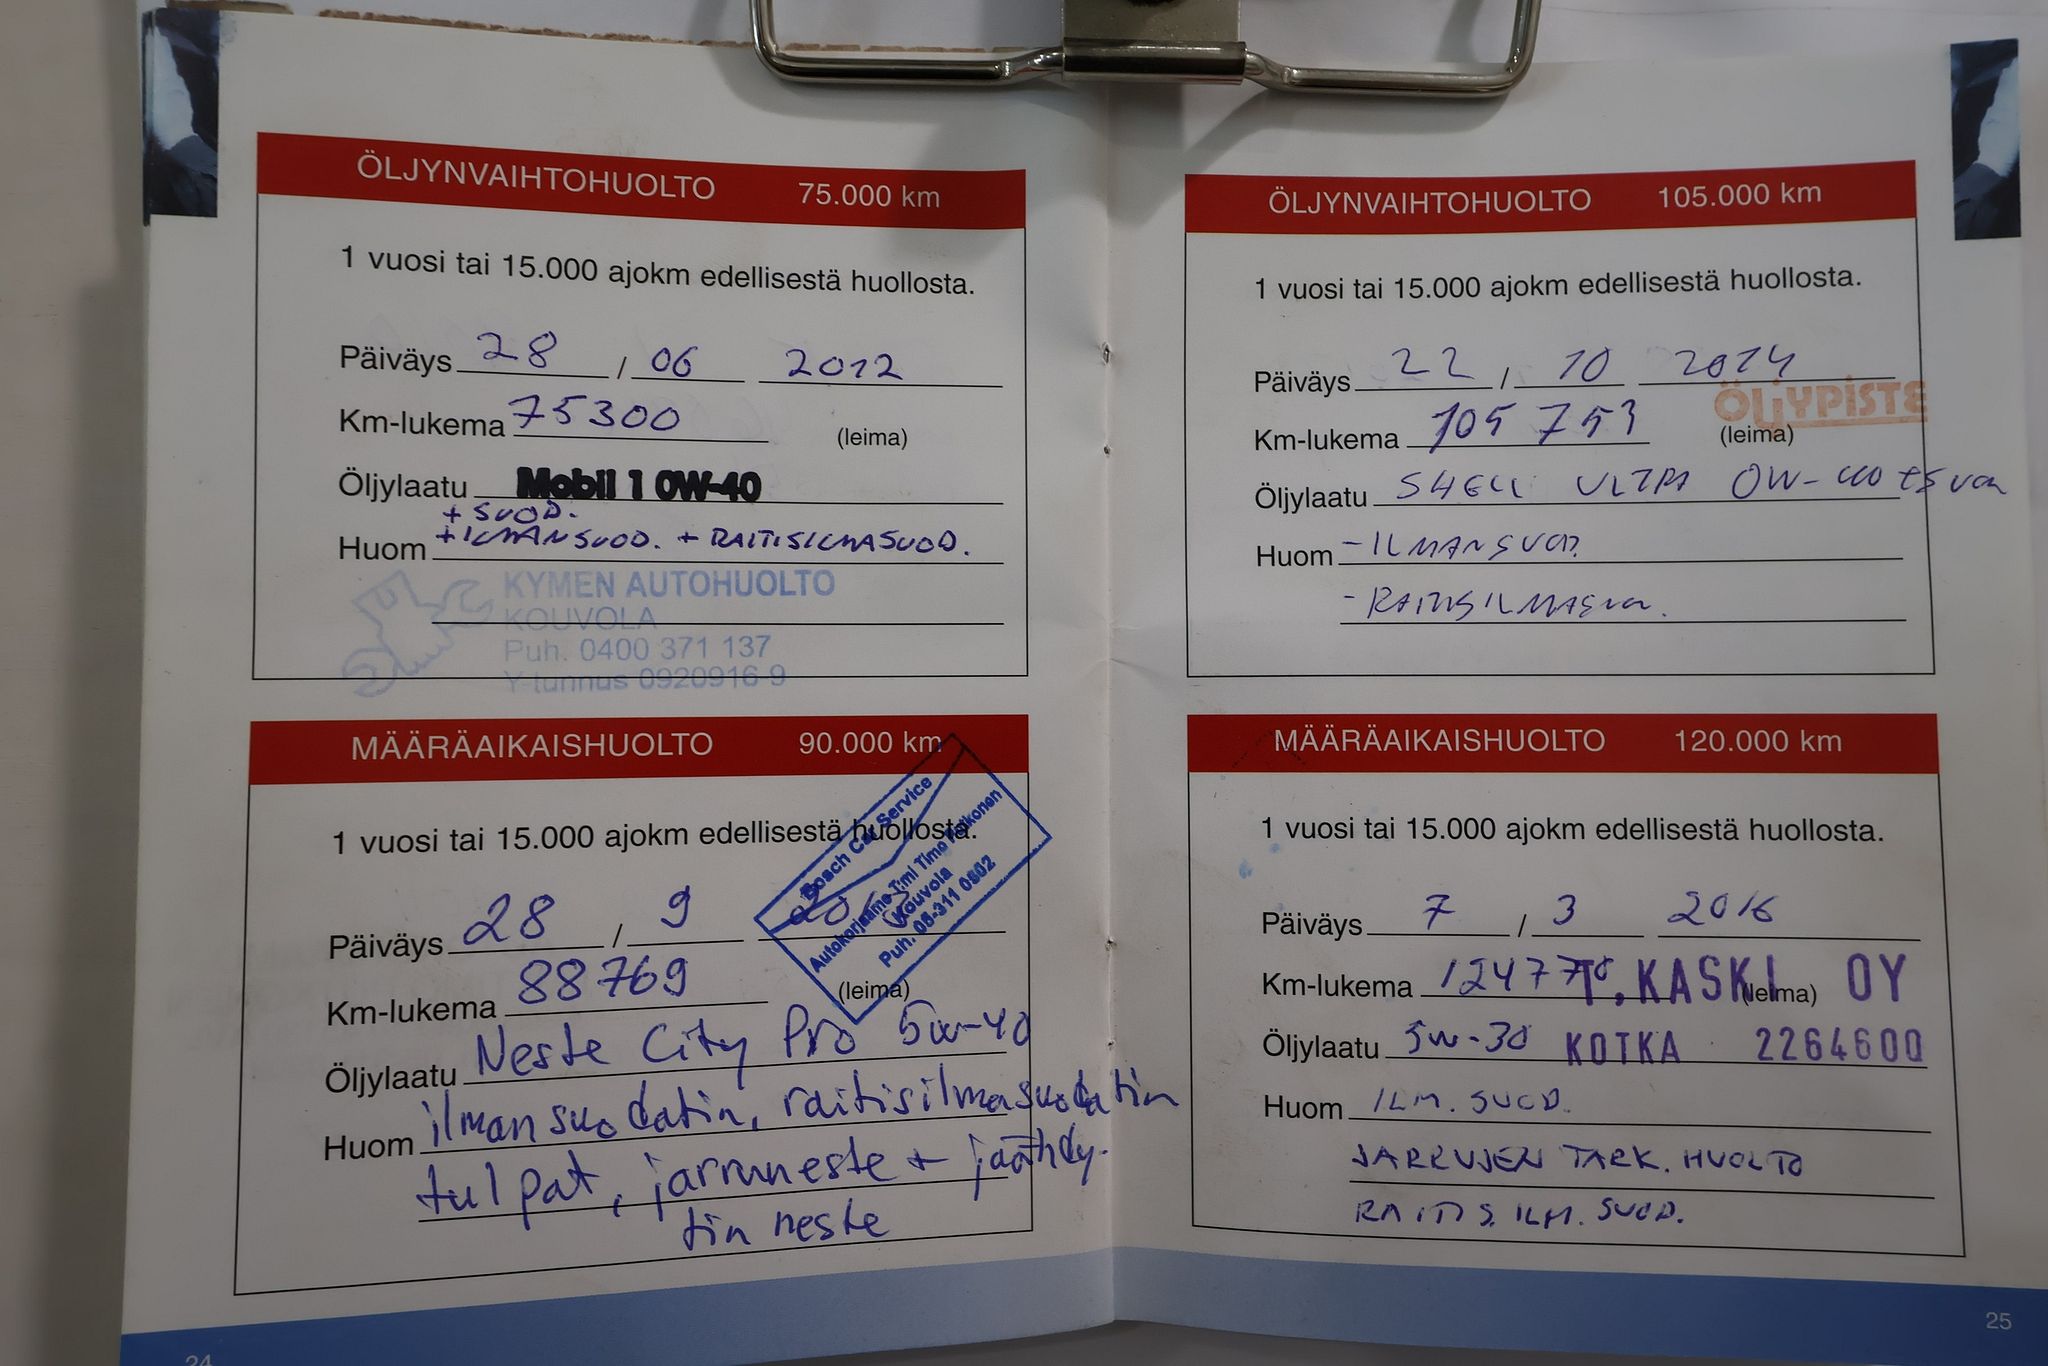 ÖLJYNVAIHTOHUOLTO 75.000 km
1 vuosi tai 15.000 ajokm edellisestä huollosta.
Päiväys 28 / 06 2012
Km-lukema 75300 (leima)
Öljylaatu Mobil 1 0W-40
+ SUOD.
Huom + ILMANSUOD. + RAITISILMASUOD.
KYMEN AUTOHUOLTO
KOUVOLA
Puh. 0400 371 137
Y-tunnus 0920916-9
MÄÄRÄAIKAISHUOLTO 90.000 km
1 vuosi tai 15.000 ajokm edellisestä huollosta.
Bosch Car Service
Autokorjaamo Tmi Timo
Kouvola
Puh. 05-311 0502
Päiväys 28 / 9 2013
Km-lukema 88769 (leima)
Öljylaatu Neste City Pro 5w-40
Huom ilmansuodatin, raitisilmasuodatin
tulpat, jarruneste + jäähdy-
tin neste
24
ÖLJYNVAIHTOHUOLTO 105.000 km
1 vuosi tai 15.000 ajokm edellisestä huollosta.
Päiväys 22 / 10 2014
ÖLJYPISTE
Km-lukema 105 753 (leima)
Öljylaatu SHELL ULTRA 0W-40
Huom - ILMANSUOD.
- RAITISILMASUO.
MÄÄRÄAIKAISHUOLTO 120.000 km
1 vuosi tai 15.000 ajokm edellisestä huollosta.
Päiväys 7 / 3 2016
Km-lukema 124770 T. KASKI OY (leima)
Öljylaatu 5W-30 KOTKA 2264600
Huom ILM. SUOD.
JARRUJEN TARK. HUOLTO
RAITIS. ILM. SUOD.
25